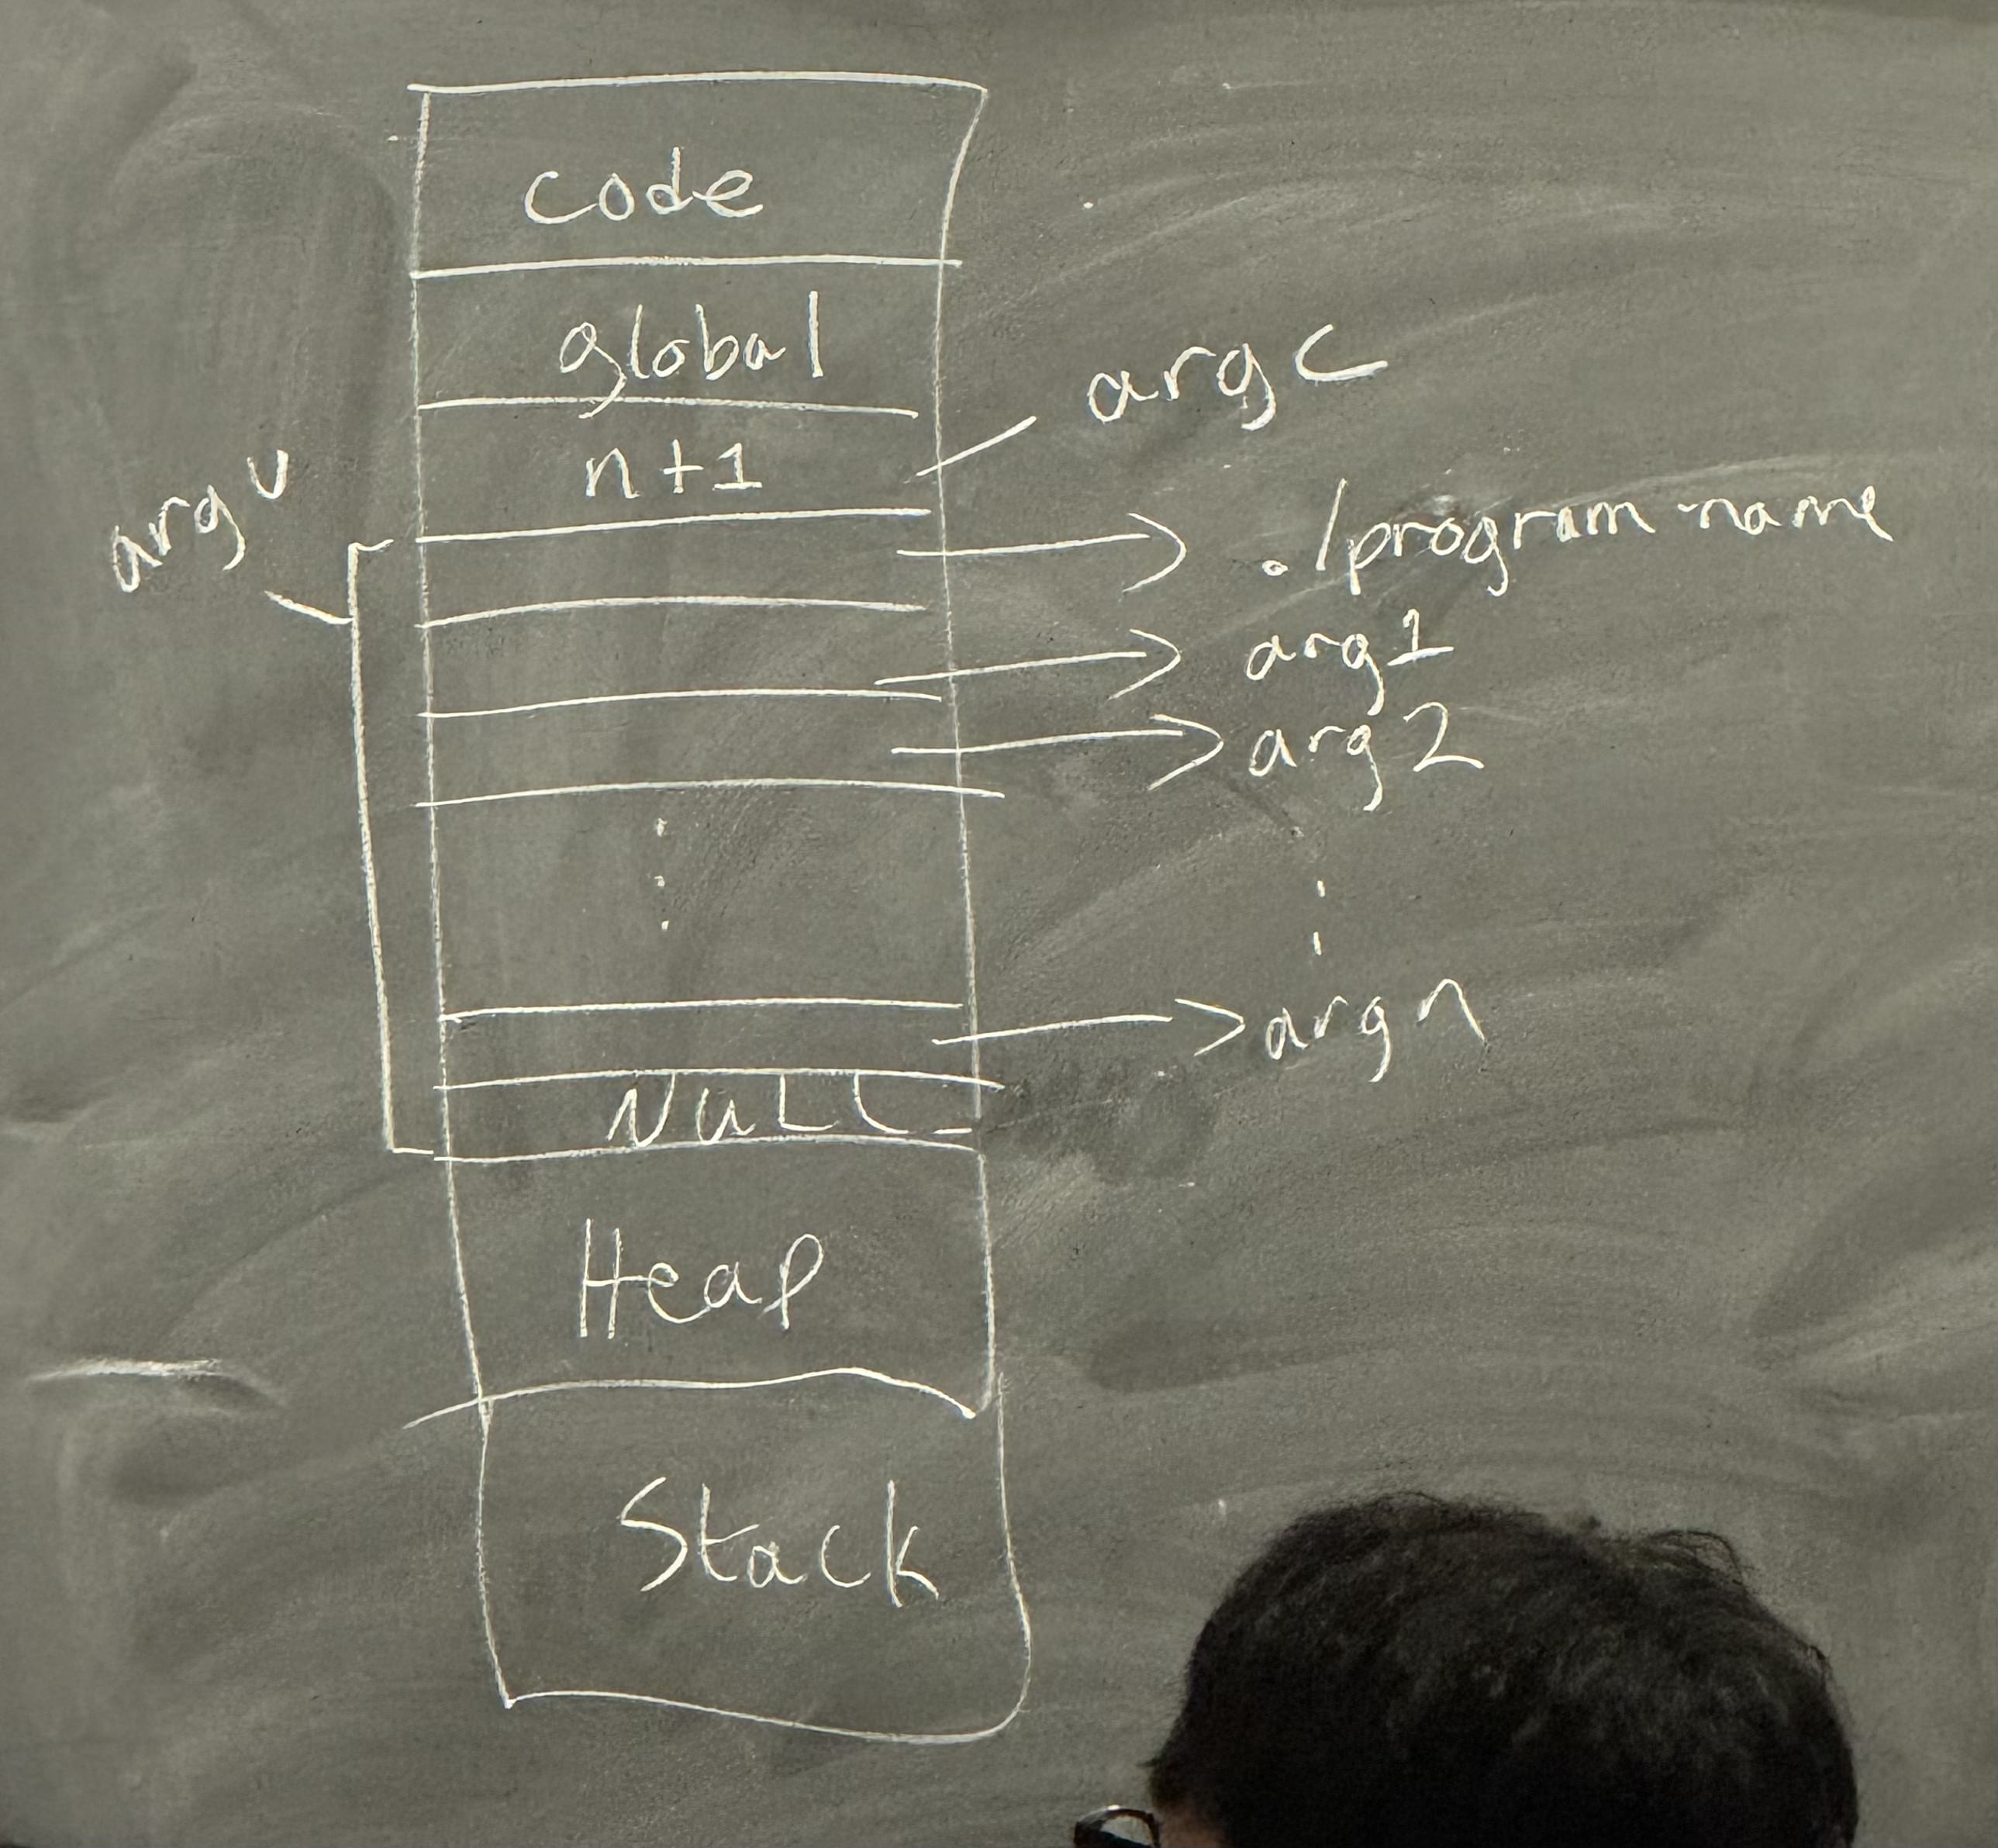 code
global
argc
n+1
argv
./program-name
arg1
arg2
argn
NULL
Heap
Stack